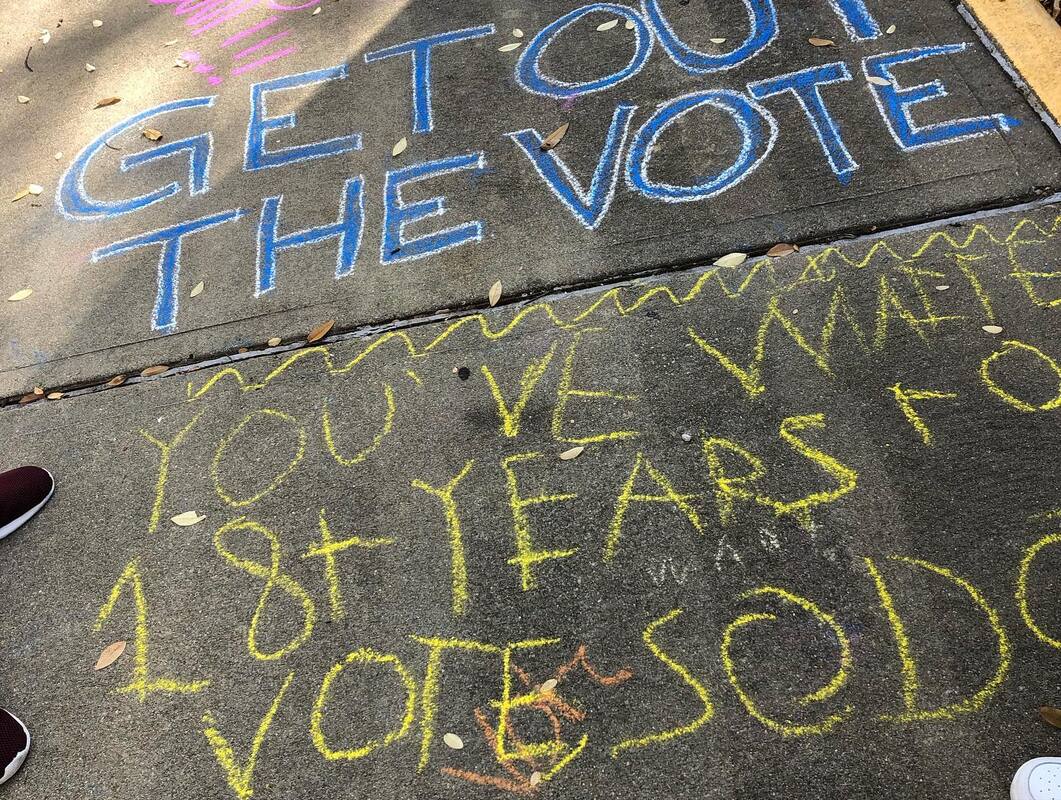 GET OUT
THE VOTE
YOU'VE WAITE
18+ YEARS TO
VOTE SO DO